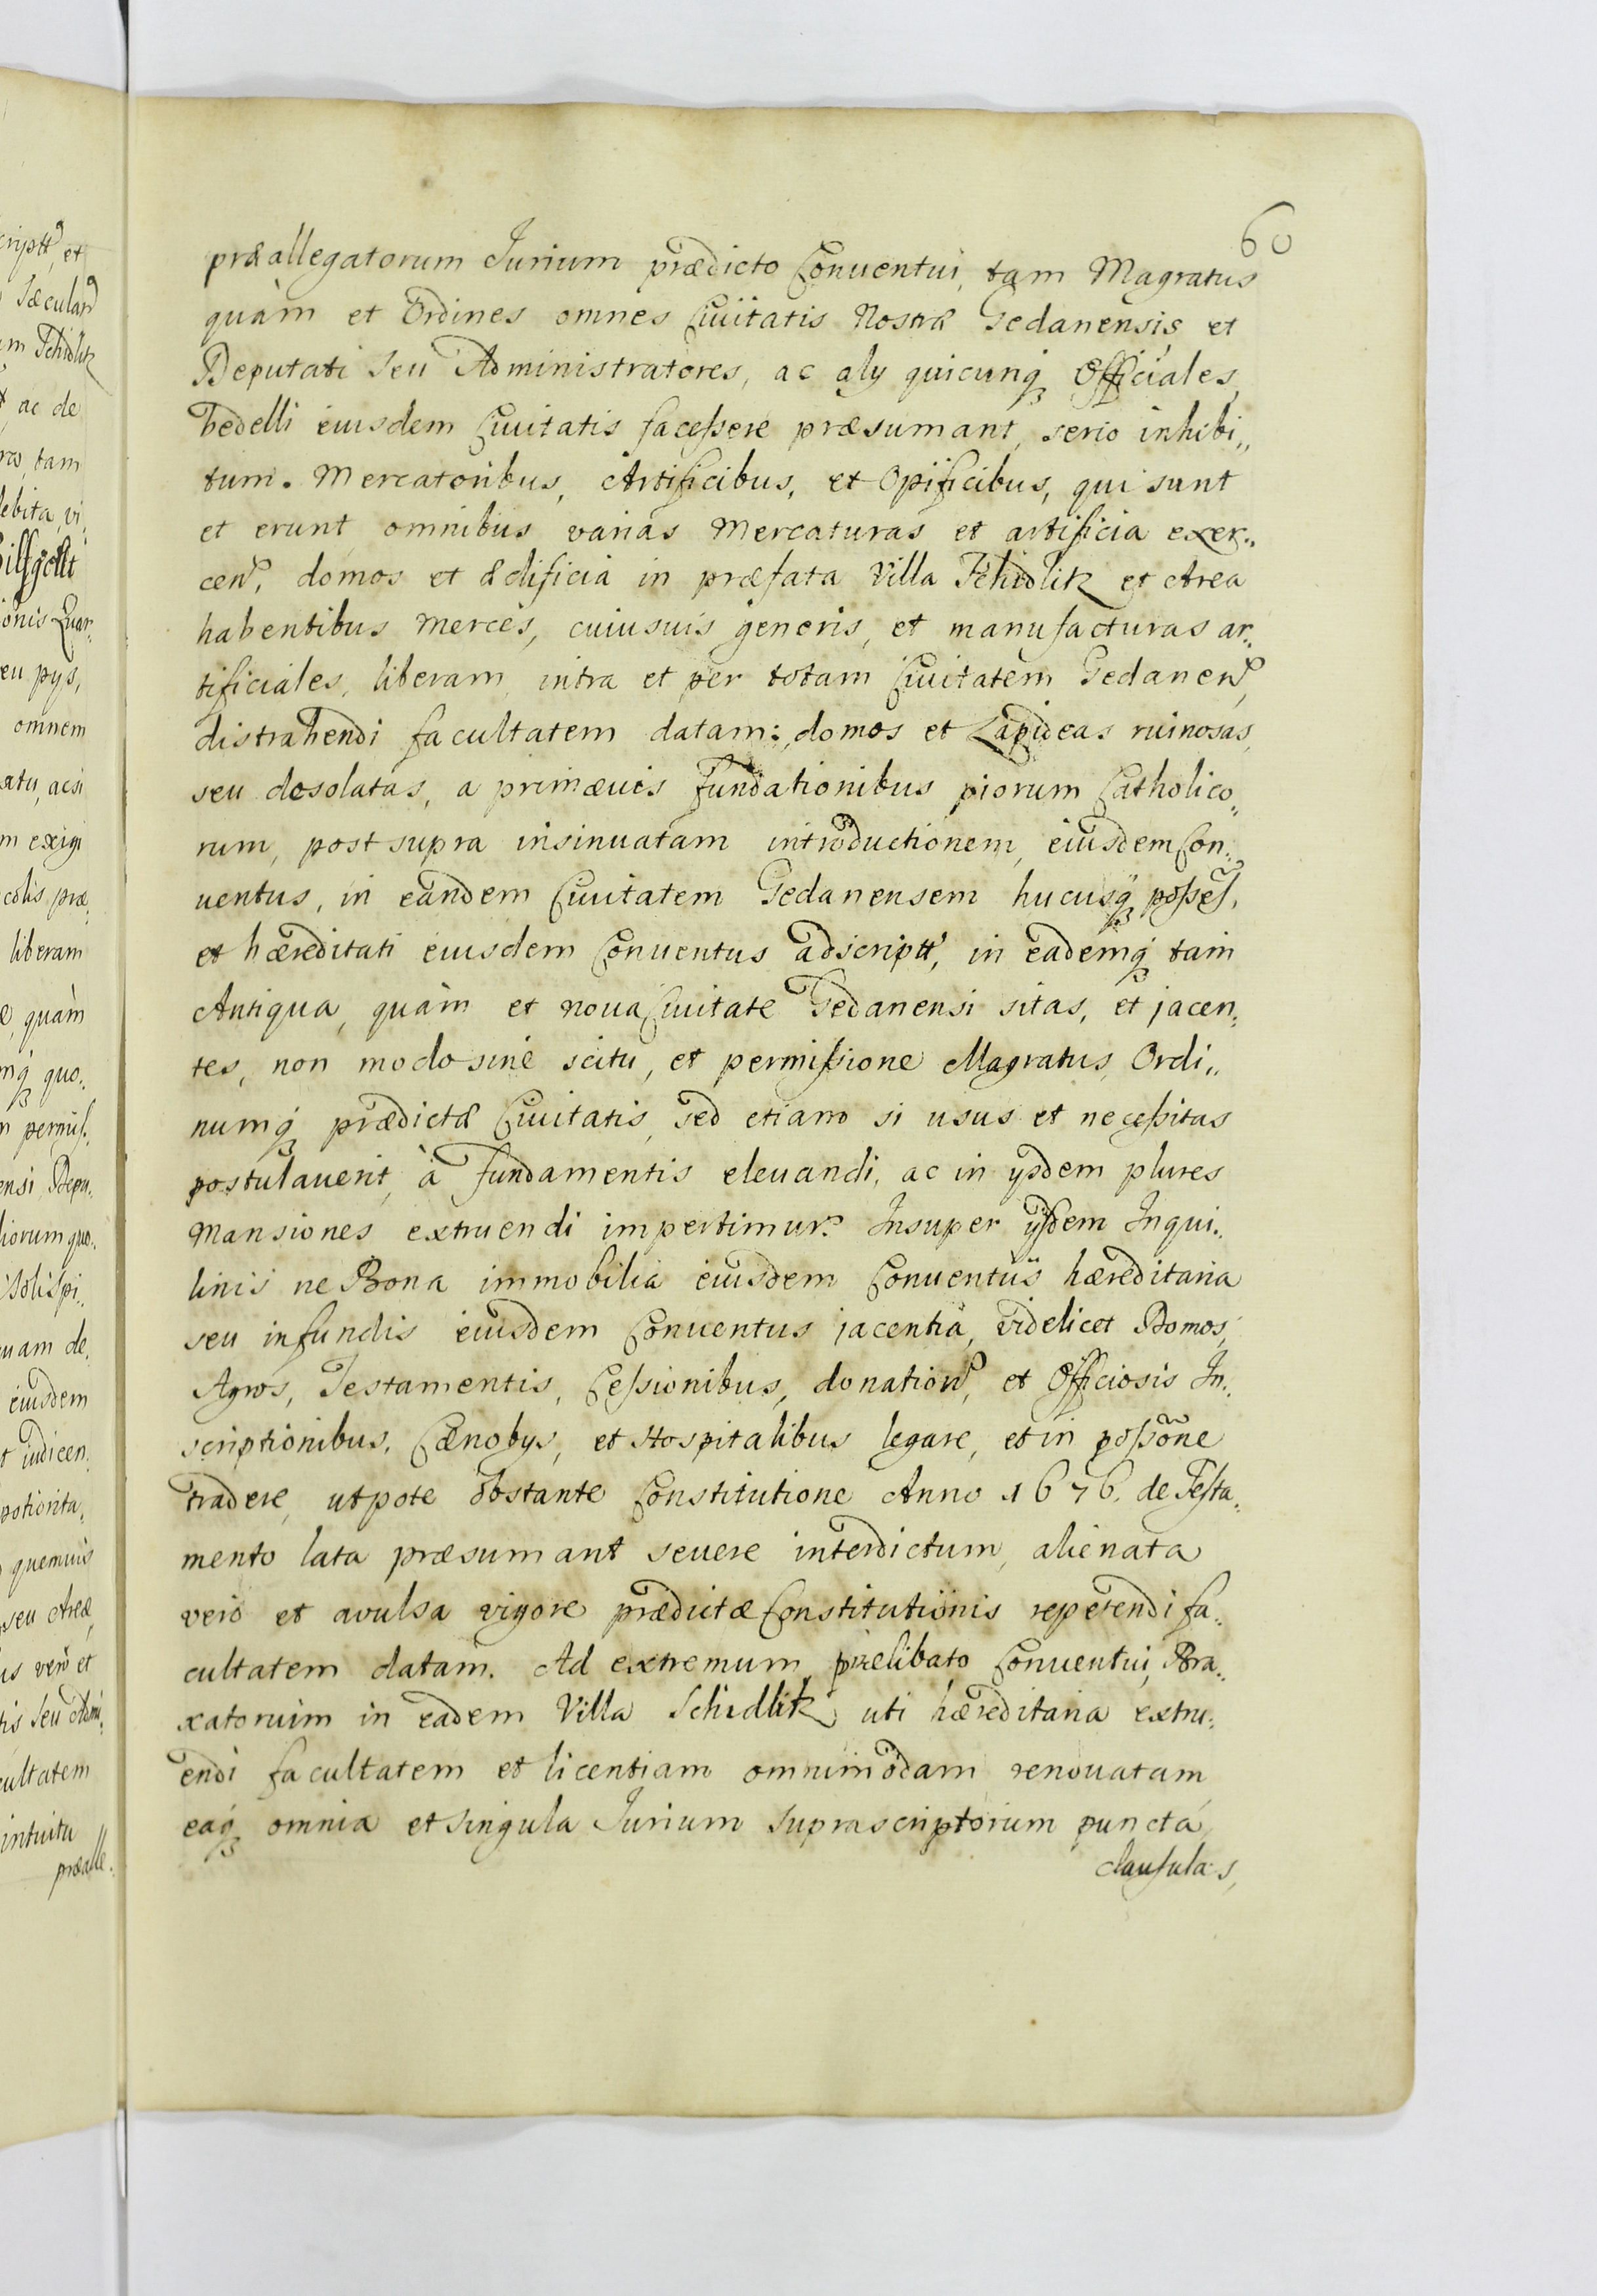 60
præallegatorum Jurium prædicto Conuentui, tam Magratus
quàm et Ordines omnes Ciuitatis Nostræ Gedanensis et
Deputati seu Administratores, ac aly quicunq Officiales,
bedelli eiusdem Ciuitatis facessere præsumant, serio inhibi„
tum. Mercatoribus, Artificibus, et Opificibus, qui sunt
et erunt omnibus varias Mercaturas et artificia exer„
cen, domos et ædificia in præfata Villa Schidlitz et Area
habentibus merces, cuiusuis generis, et manufacturas ar„
tificiales, liberam intra et per totam Ciuitatem Gedanen,
distrahendi facultatem datam; domos et Lapideas ruinosas,
seu desolatas, a primæuis fundationibus piorum Catholico„
rum, post supra insinuatam introductionem, eiusdem Con„
uentus, in eandem Ciuitatem Gedanensem hucusq posses,
et hæreditati eiusdem Conuentus adscriptt, in eademq tam
Antiqua, quàm et noua Ciuitate Gedanensi sitas, et jacen„
tes, non modo sine scitu, et permissione Magratus, Ordi„
numq prædictæ Ciuitatis, sed etiam si usus et necessitas
postulauerit, à fundamentis eleuandi, ac in ysdem plures
Mansiones extruendi impertimur. Insuper ysdem Inqui„
linis ne Bona immobilia eiusdem Conuentûs hæreditaria
seu in fundis eiusdem Conuentus jacentia, videlicet Domos,
Agros, Testamentis, Cessionibus, donation, et Officiosis In„
scriptionibus, Cænobys, et Hospitalibus legare, et in possõne
tradere, utpote obstante Constitutione Anno 1676. de Testa„
mento lata præsumant seuere interdictum, alienata
vero et avulsa vigore prædictæ Constitutionis repetendi fa„
cultatem datam. Ad extremum, prælibato Conuentui, Bra„
xatorium in eadem Villa Schidlitz, uti hæreditaria extru„
endi facultatem et licentiam omnimodam renouatam,
eaq omnia et singula Jurium suprascriptorum puncta,
clausulas,